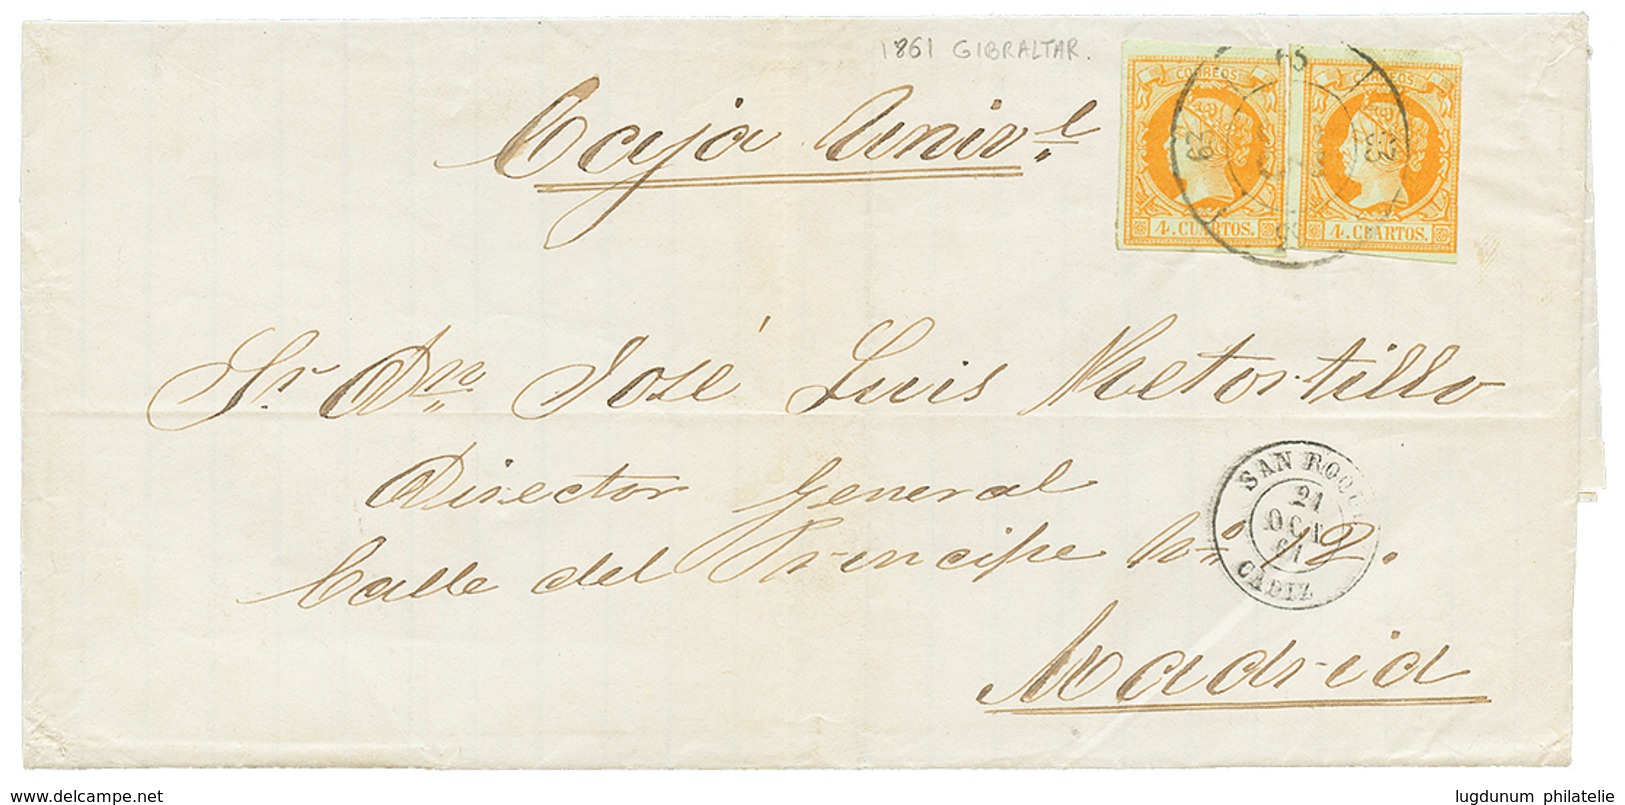 1861 GIBRALTAR.
Caja Univ.l
CORREOS CORREOS
4. CUARTOS. 4. CUARTOS.
Sr. Dn José Luis Retortillo
Director General
Calle del Principe No 12.
Madrid
SAN ROQUE
21
OCT
61
CADIZ
delcampe.net
lugdunum philatelie